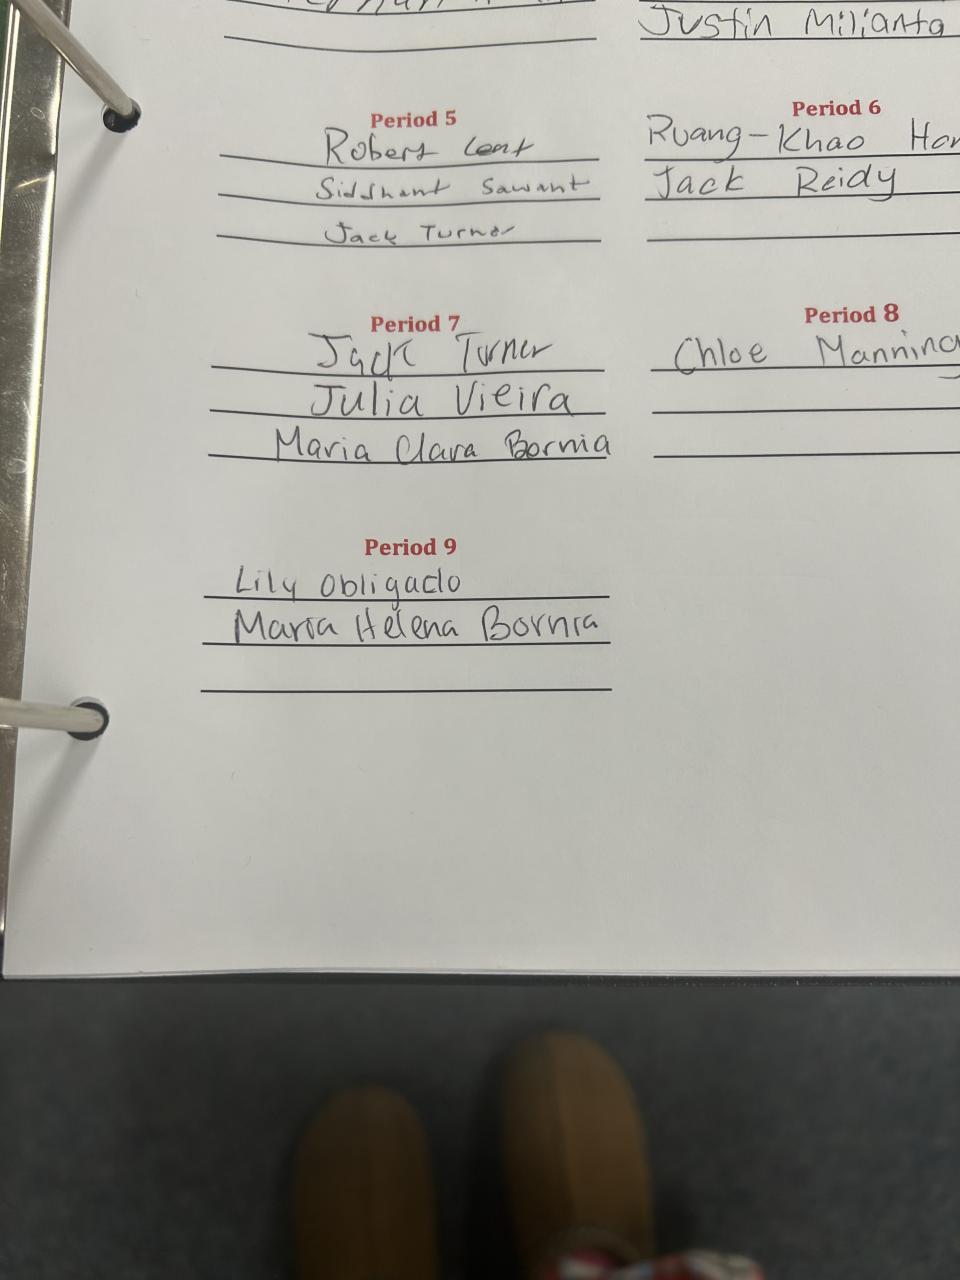 Justin Milianta
Period 5
Robert
Siddhant Sawant
Jack Turner
Period 6
Ruang-Khao
Jack Reidy
Period 7
Jack Turner
Julia Vieira
Maria Clara Bornia
Period 8
Chloe Manning
Period 9
Lily Obligado
Maria Helena Bornia